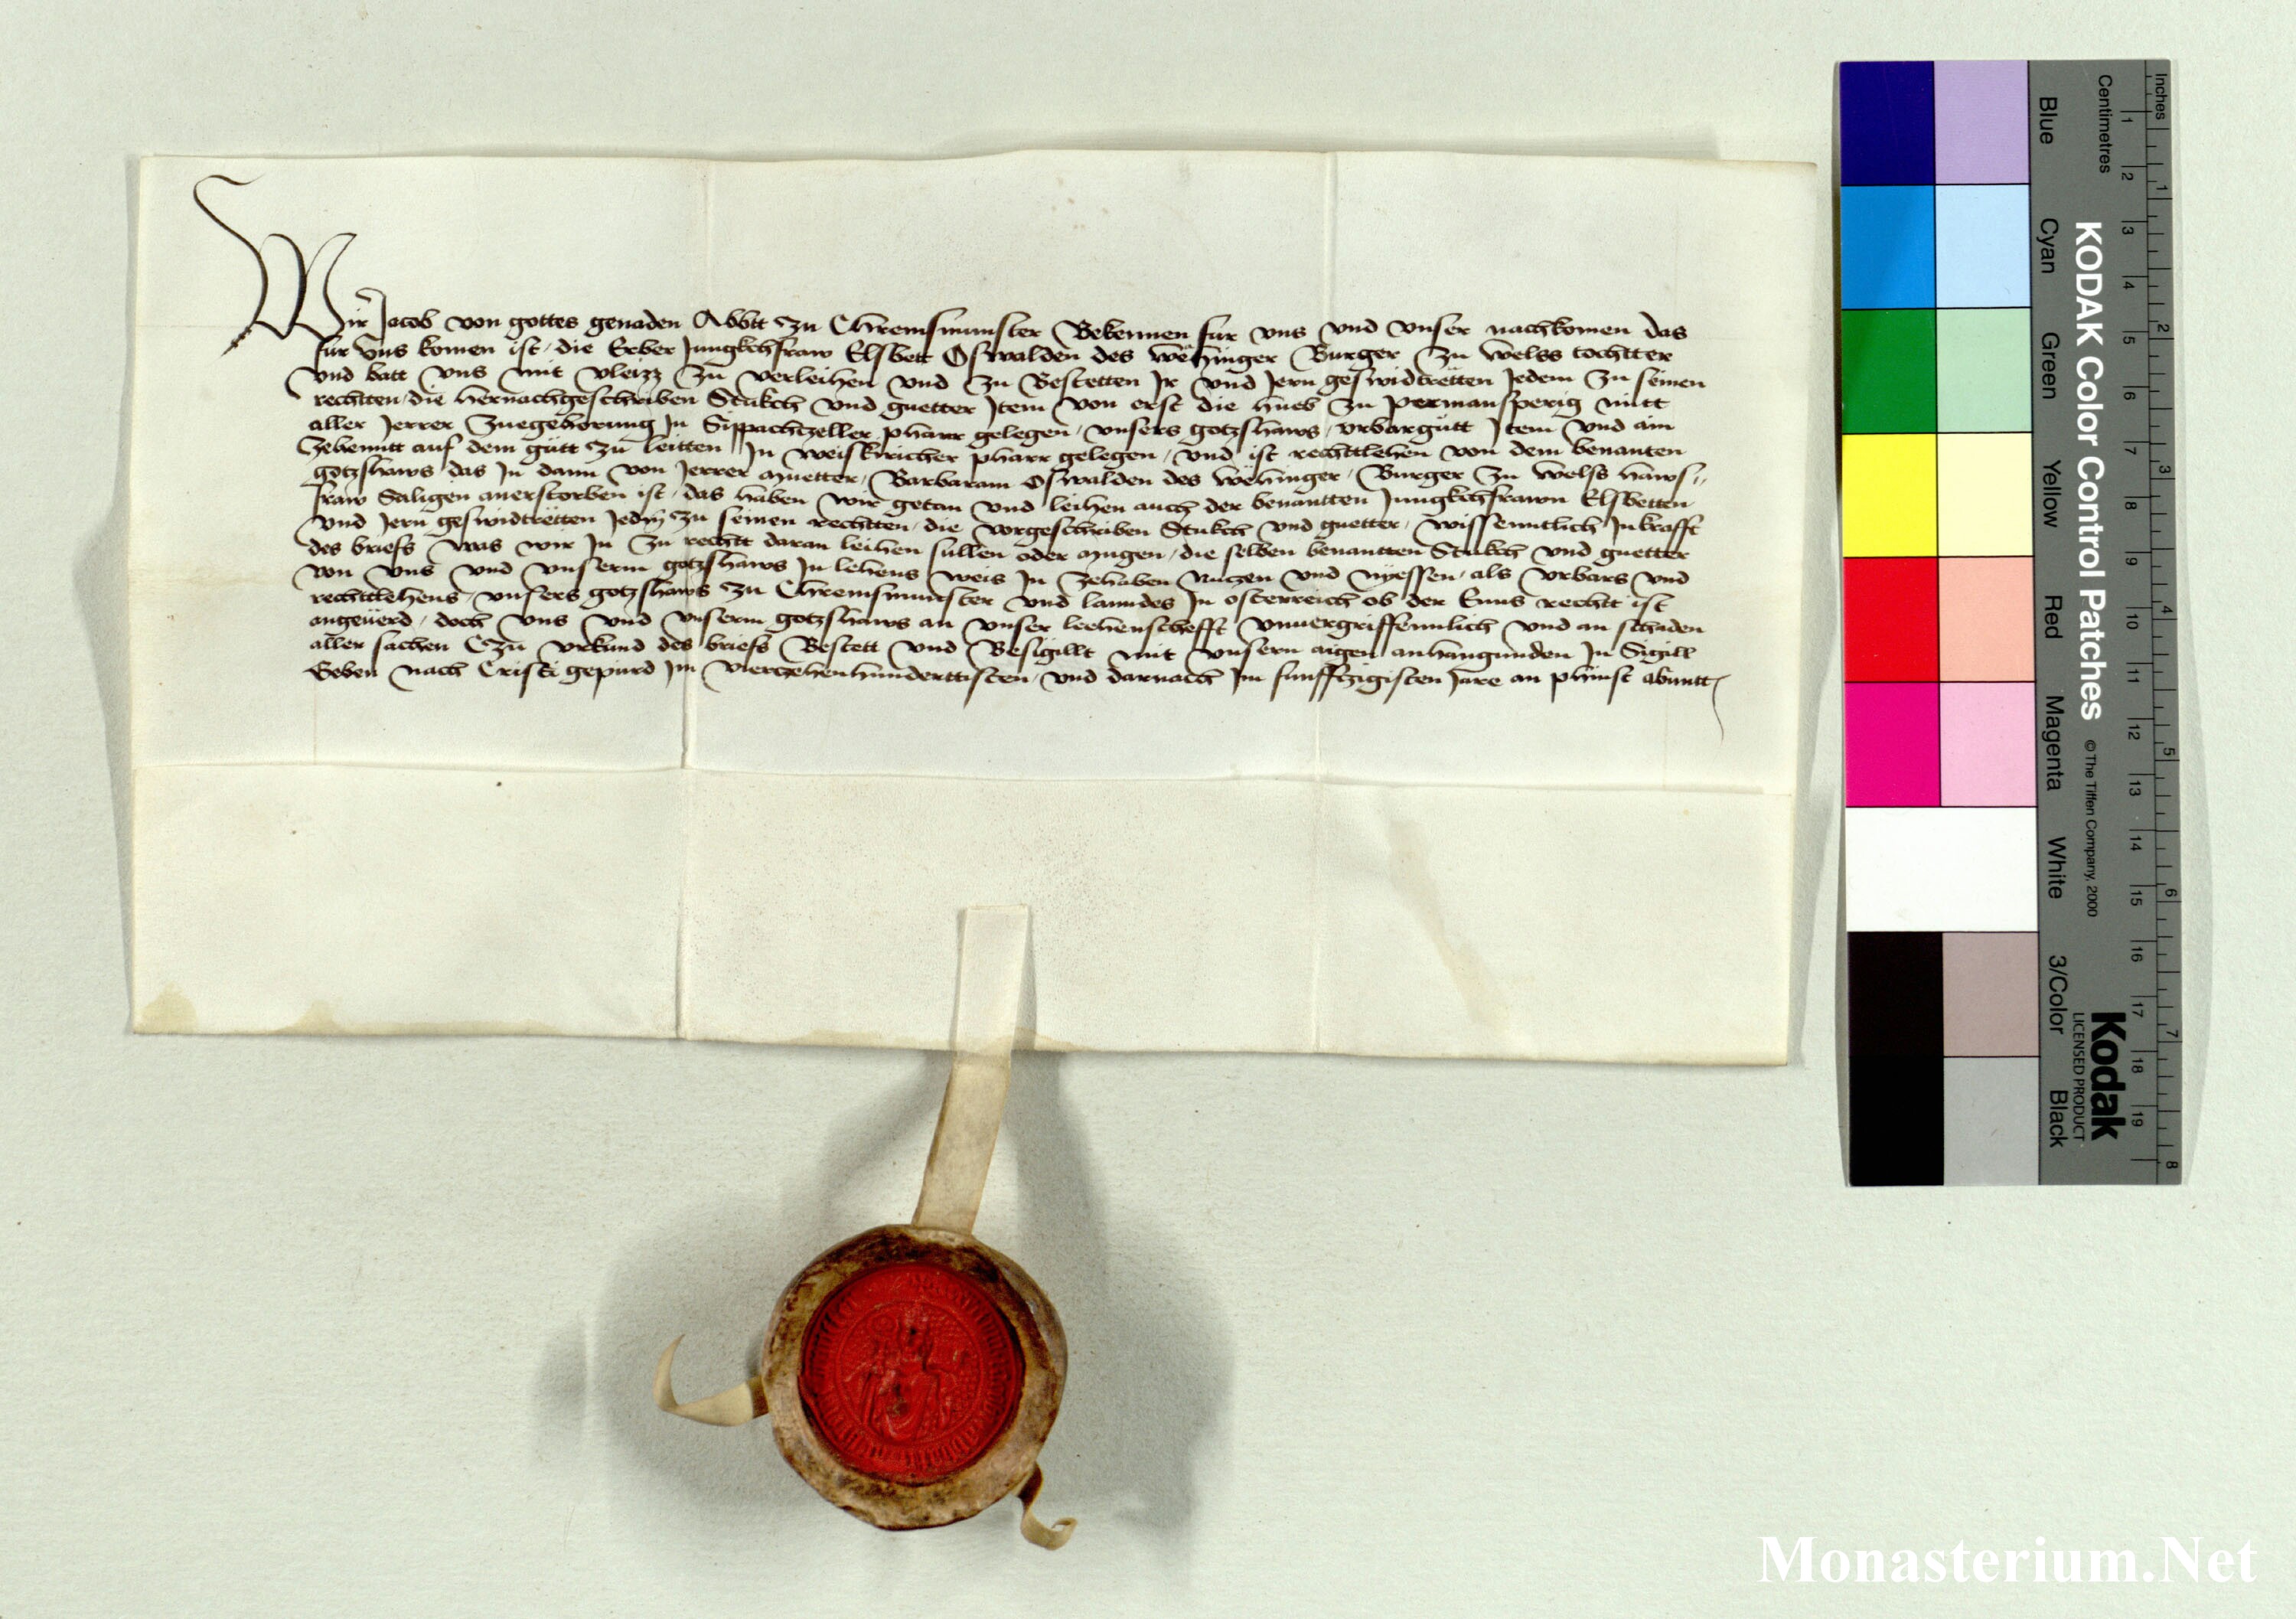 Wir Jacob von gottes genaden Abbtt zu Chremsmunster Bekennen fur vns vnd vnser nachkomen das
fur vns komen ist / die Erber Jungkchfraw Elsbett Oswalden des wëhinger Burger zu welss tochtter
vnd batt vns mit vleizz zu verleihen vnd zu Bestetten Jr vnd Jern geswidtretten Jedem zu seinen
rechtten / die hernachgeschriben Stukch vnd guetter Jtem von erst die hueb zu permansperig mitt
aller Jerrer zuegeherung Jn Sippachtzeller pharr gelegen / vnsers gotzshaws / vrbargutt Jtem vnd am
zehenntt auf dem gutt zu leitten Jn weiskiricher pharr gelegen / vnd ist rechttlehen von dem benanten
gotzshaws das Jn dann von Jerrer muetter / Barbaram Oswalden des wëhinger / Burger zu welss haws
fraw Saligen anerstorben ist / das haben wir getan vnd leihen auch der benantten Jungkchfrawn Elsbetten
vnd Jern geswidtretten Jedm zu seinen rechtten / die vorgeschriben Stukch vnd guetter / wissenntlich Jn krafft
des briefs was wir Jn zu rechtt daran leihen sullen oder mugen / die selben benantten Stukch vnd guetter
von vns vnd vnserm gotzshaws Jn lehens weis Jn zehaben nutzen vnd nyessen / als vrbars vnd
rechttlehens / vnsers gotzshaws zu Chremsmunster vnd lanndes Jn osterreich ob der Enns rechtt ist
angeuerd / doch vns vnd vnserm gotzshaws an vnser leehenschefft vnuergriffennlich vnd an schaden
aller sachen Czu vrkund des briefs Bestett vnd Besigillt mit vnsern aigen anhangunden Jn Sigill
Geben nach Cristi gepurd Jm vierzehenhunderttisten / vnd darnach Jm funffczigisten Jare an phinst abentt
Inches
Centimetres
Blue
Cyan
Green
Yellow
Red
Magenta
White
3/Color
Black
KODAK Color Control Patches
© The Tiffen Company, 2000
Kodak
LICENSED PRODUCT
1 2 3 4 5 6 7 8 9 10 11 12 13 14 15 16 17 18 19
1 2 3 4 5 6 7 8
Monasterium.Net